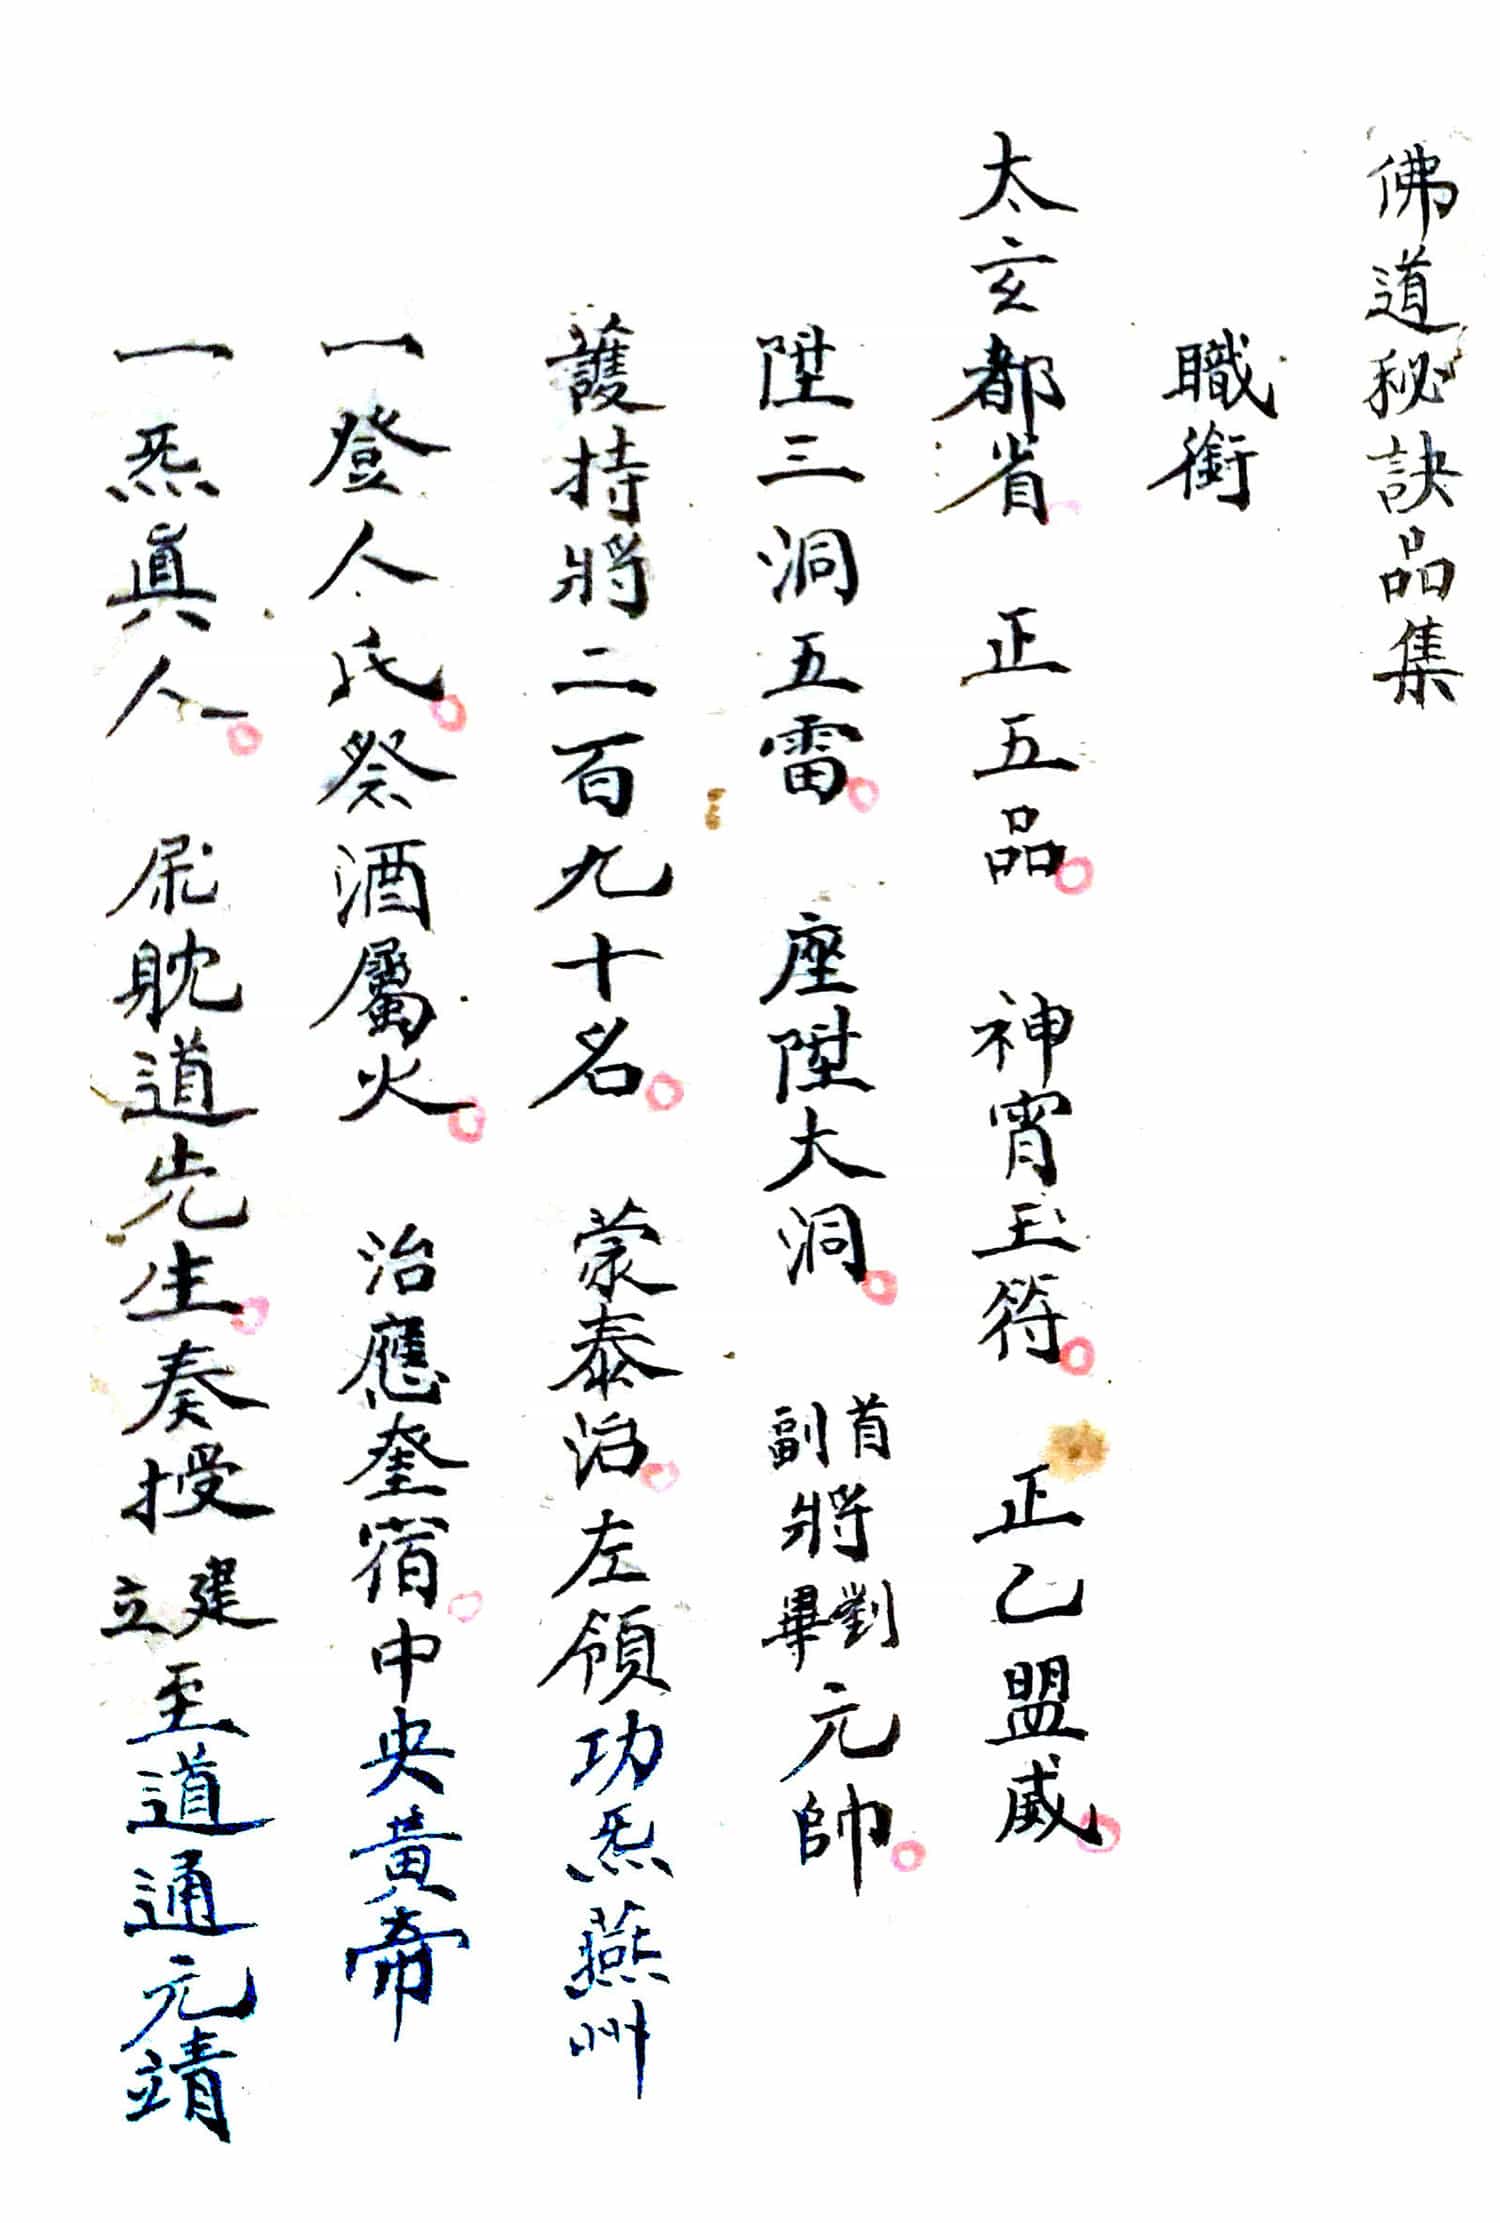 佛道秘訣品集
職銜
太玄都省 正五品。 神霄玉符。 正乙盟威。
陞三洞五雷。 座陞大洞。 首副將劉畢元帥。
護持將二百九十名。 蒙泰治。左領功炁燕州
一登人氏。祭酒屬火。 治應奎宿。中央黃帝
一炁真人。 躭道先生。奏授建立至道通元靖